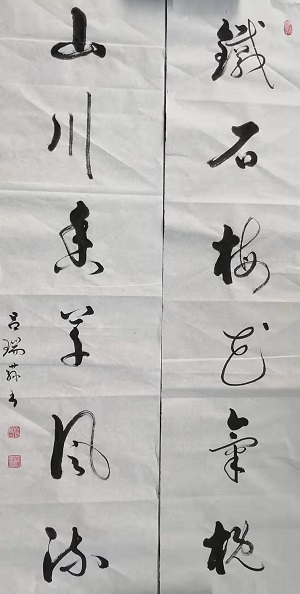 鐵石梅花氣概
山川香草風流
呂瑞